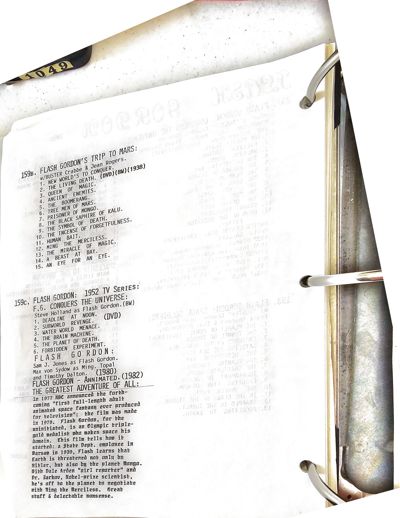 1049
159B. FLASH GORDON'S TRIP TO MARS:
w/BUSTER Crabbe & Jean Rogers.
1. NEW WORLD'S TO CONQUER. (DVD)(BW)(1938)
2. THE LIVING DEATH.
3. QUEEN OF MAGIC.
4. ANCIENT ENEMIES.
5. THE BOOMERANG.
6. TREE MEN OF MARS.
7. PRISONER OF MONGO.
8. THE BLACK SAPHIRE OF KALU.
9. THE SYMBOL OF DEATH.
10. THE INCENSE OF FORGETFULNESS.
11. HUMAN BAIT.
12. MING THE MERCILESS.
13. THE MIRACLE OF MAGIC.
14. A BEAST AT BAY.
15. AN EYE FOR AN EYE.
159C. FLASH GORDON: 1952 TV SERIES:
F.G. CONQUERS THE UNIVERSE:
Steve Holland as Flash Gordon.(BW)
1. DEADLINE AT NOON. (DVD)
2. SUBWORLD REVENGE.
3. WATER WORLD MENACE.
4. THE BRAIN MACHINE.
5. THE PLANET OF DEATH.
6. FORBIDDEN EXPERIMENT.
FLASH GORDON:
Sam J. Jones as Flash Gordon.
Max von Sydow as Ming. Topal
and Timothy Dalton. (1980)
FLASH GORDON - ANNIMATED.(1982)
THE GREATEST ADVENTURE OF ALL:
In 1977 NBC announced the forth-
coming "first full-length adult
animated space fantasy ever produced
for television"; the film was made
in 1979. Flash Gordon, for the
uninitiated, is an Olympic triple-
gold medalist who makes space his
domain. This film tells how it
started: a State Dept. employee in
Warsaw in 1939, Flash learns that
Earth is threatened not only by
Hitler, but also by the planet Mongo.
With Dale Arden "girl reporter" and
Dr. Zarkov, Nobel-prize scientist,
he's off to the planet to negotiate
with Ming the Merciless. Great
stuff & delectable nonsense.